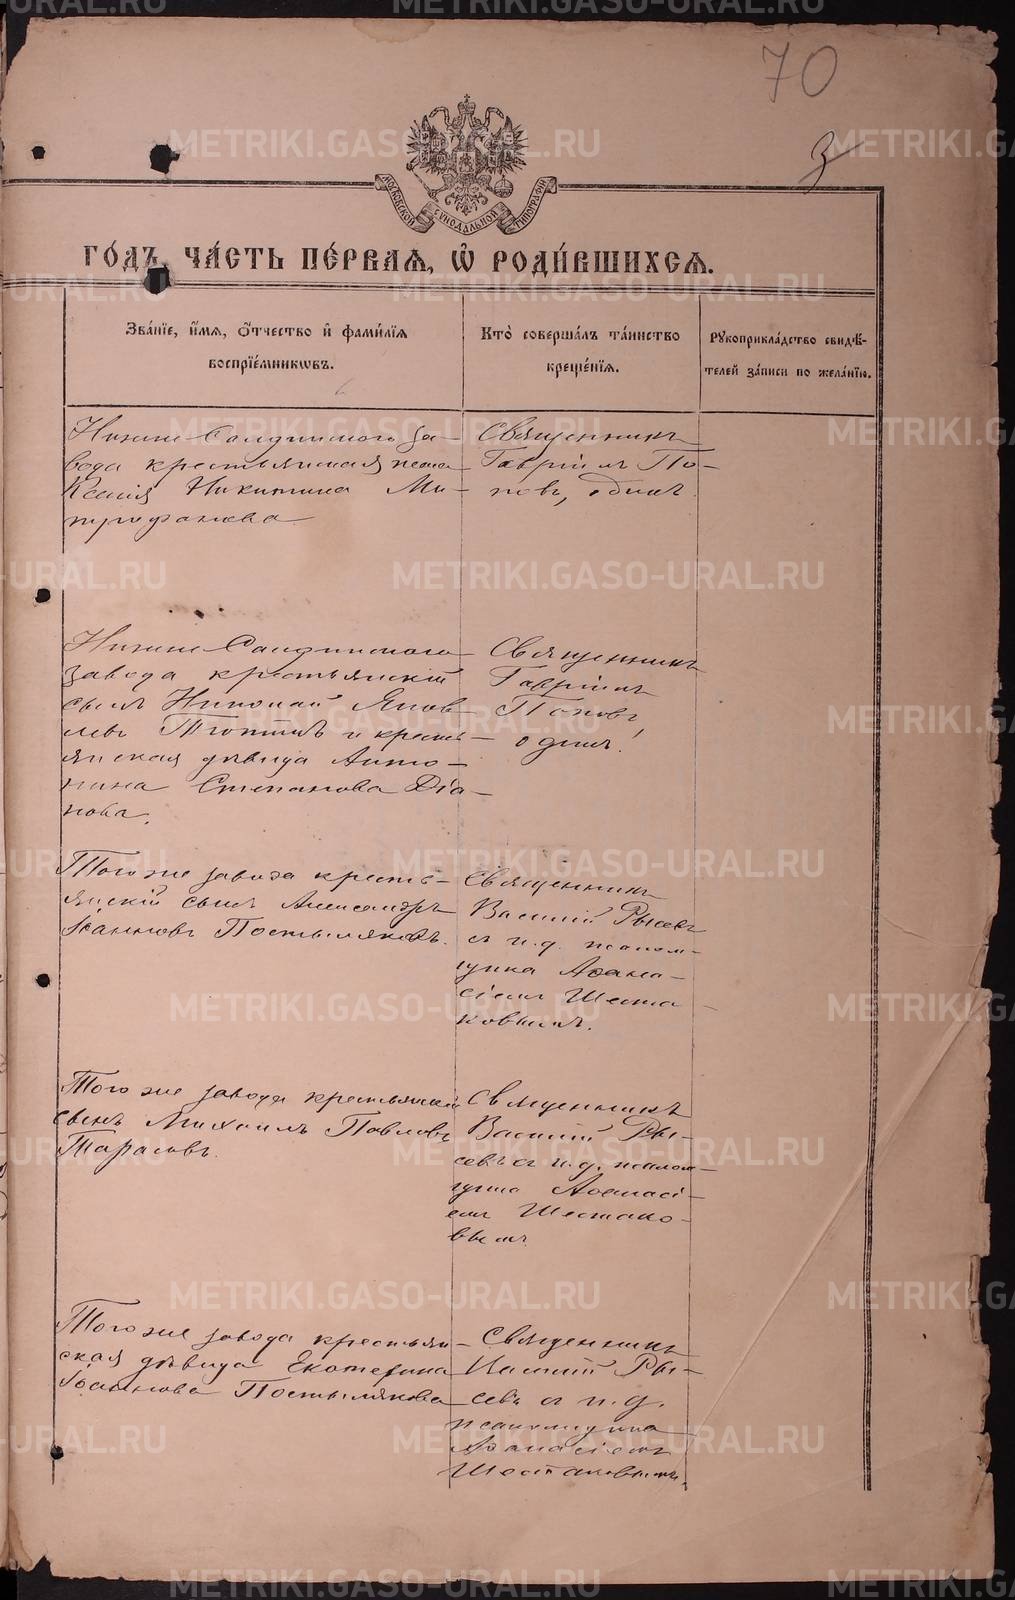 70
З
МОСКОВСКОЙ СѴНОДАЛЬНОЙ ТИПОГРАФІИ
ГО́ДЪ, ЧА́СТЬ ПЕ́РВАѦ, Ѡ҆ РОДИ́ВШИХСѦ.
Зва́нїе, и҆́мѧ, ѻ҆́тчество и҆ фами́лїѧ
воспрїе́мникѡвъ.
Кто̀ соверша́лъ та́инство
креще́нїѧ.
Рꙋкоприкла́дство свидѣ́-
телей за́писи по жела́нїю.
Нижне Салдинскаго за-
вода крестьянская жена
Ксенія Никитина Ми-
трофанова
Священникъ
Гавріилъ По-
повъ, одинъ.
Нижне Салдинскаго
завода крестьянскій
сынъ Николай Яков-
левъ Тютинъ и кресть-
янская дѣвица Анто-
нина Степанова Діа-
нова.
Священникъ
Гавріилъ
Поповъ
одинъ!
Того же завода кресть-
янскій сынъ Александръ
Іоанновъ Постыляковъ.
Священникъ
Василій Рысевъ
съ и. д. псалом-
щика Аѳана-
сіемъ Шеста-
ковымъ.
Того же завода крестьянскій
сынъ Михаилъ Павловъ
Тарасовъ.
Священникъ
Василій Ры-
севъ съ и. д. псалом-
щика Аѳанасі-
емъ Шестако-
вымъ.
Того же завода крестьян-
ская дѣвица Екатерина
Іоаннова Постылякова
Священникъ
Василій Ры-
севъ съ и. д.
псаломщика
Аѳанасіемъ
Шестаковымъ.
METRIKI.GASO-URAL.RU